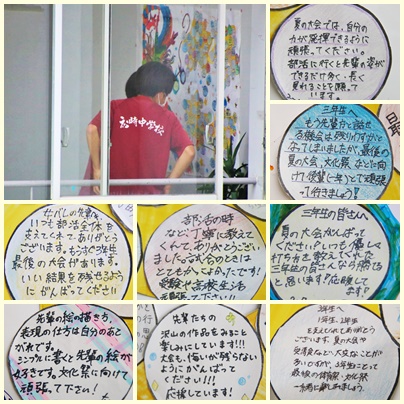 夏の大会では、自分の
力が発揮できるように
頑張ってください。
部活に行くと先輩の姿が
できるだけ多く、長く
見れることを願って
います。
中学校
三年生へ
もう先輩方と話せ
る機会は残りわずかと
なってしまいましたが、最後の
夏の大会、文化祭などに向
けて1学期一年とて頑張
って行きましょう!
いつも部活全体を
支えてくれて、ありがとうご
ざいます。もうすぐで3年生
最後の大会があります。
いい結果を残せるよう
にがんばってください
部活の時
など丁寧に教えて
くれて、ありがとうござい
ました。
とてもかっこよかったです!
受験や高校生活
三年生の皆さんへ
夏の大会がんばって
ください!いつも優しく
打ち方を教えてくれた
三年生の皆さんなら勝てる
と思います!応援して
ます!
先輩の絵の描き方、
表現の仕方は自分のあこ
がれです。
シンプルに書く先輩の絵が
好きです。文化祭に向けて
頑張って下さい!
先輩たちの
沢山の作品をみること
楽しみにしています!!!
大会も、悔いが残らない
ようにがんばって
ください!!!
応援しています!
3年生へ
1年生、2年生
を支えてくれてありがとう
ございます。夏の大会や
受験など、大変なことが
多いですが、3年生にとって
最後の体育祭・文化祭
一緒に楽しみましょう。